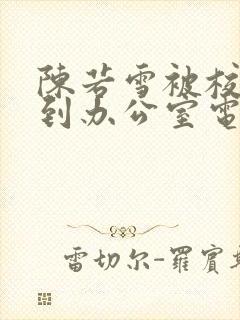 陳若雪被校
到办公室電
雷切尔-羅賓斯